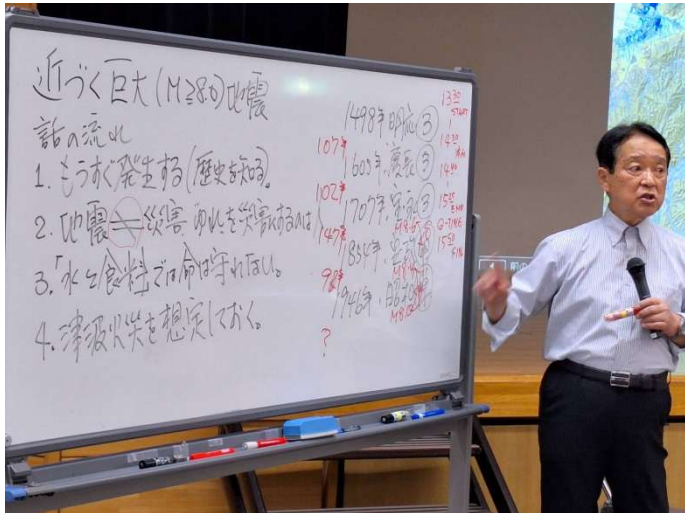 近づく巨大(M≧8.0)地震
話の流れ
1. もうすぐ発生する(歴史を知る)。
2. 地震≠災害 ゆれを災害にするのは
3.「水と食料」では命は守れない。
4. 津波火災を想定しておく。
1498年.明応③
107年
1605年.慶長③
102年
1707年.宝永③
147年
1854年.安政
1946年.昭和
?
13:30
START
14:30
15:50
FIN